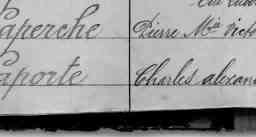 Laperche Pierre Mie Victo
Laporte Charles alexan